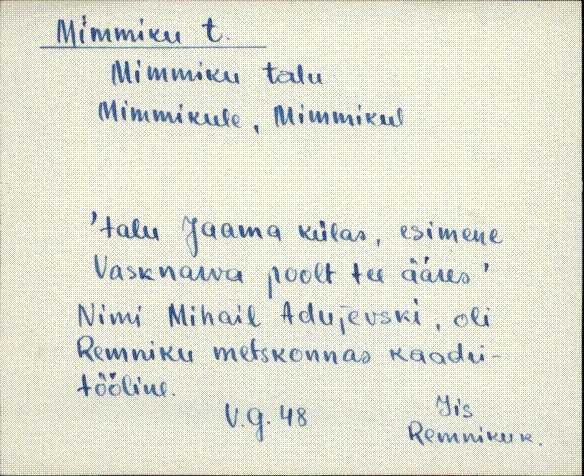 Mimmiku t.
Mimmiku talu
Mimmikule, Mimmikul
'talu Jaama külas, esimene
Vasknarva poolt tee ääres'
Nimi Mihail Adujevski, oli
Remniku metskonnas kaadri-
tööline.
V.G. 48
Iis
Remniku k.